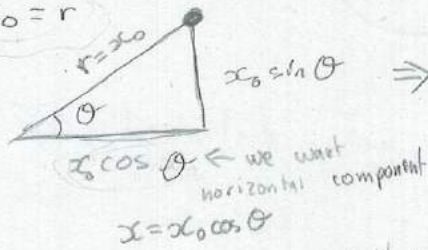 x₀ = r
r = x₀
x₀ sin θ ⇒
θ
x₀ cos θ ← we want
horizontal component
x = x₀ cos θ